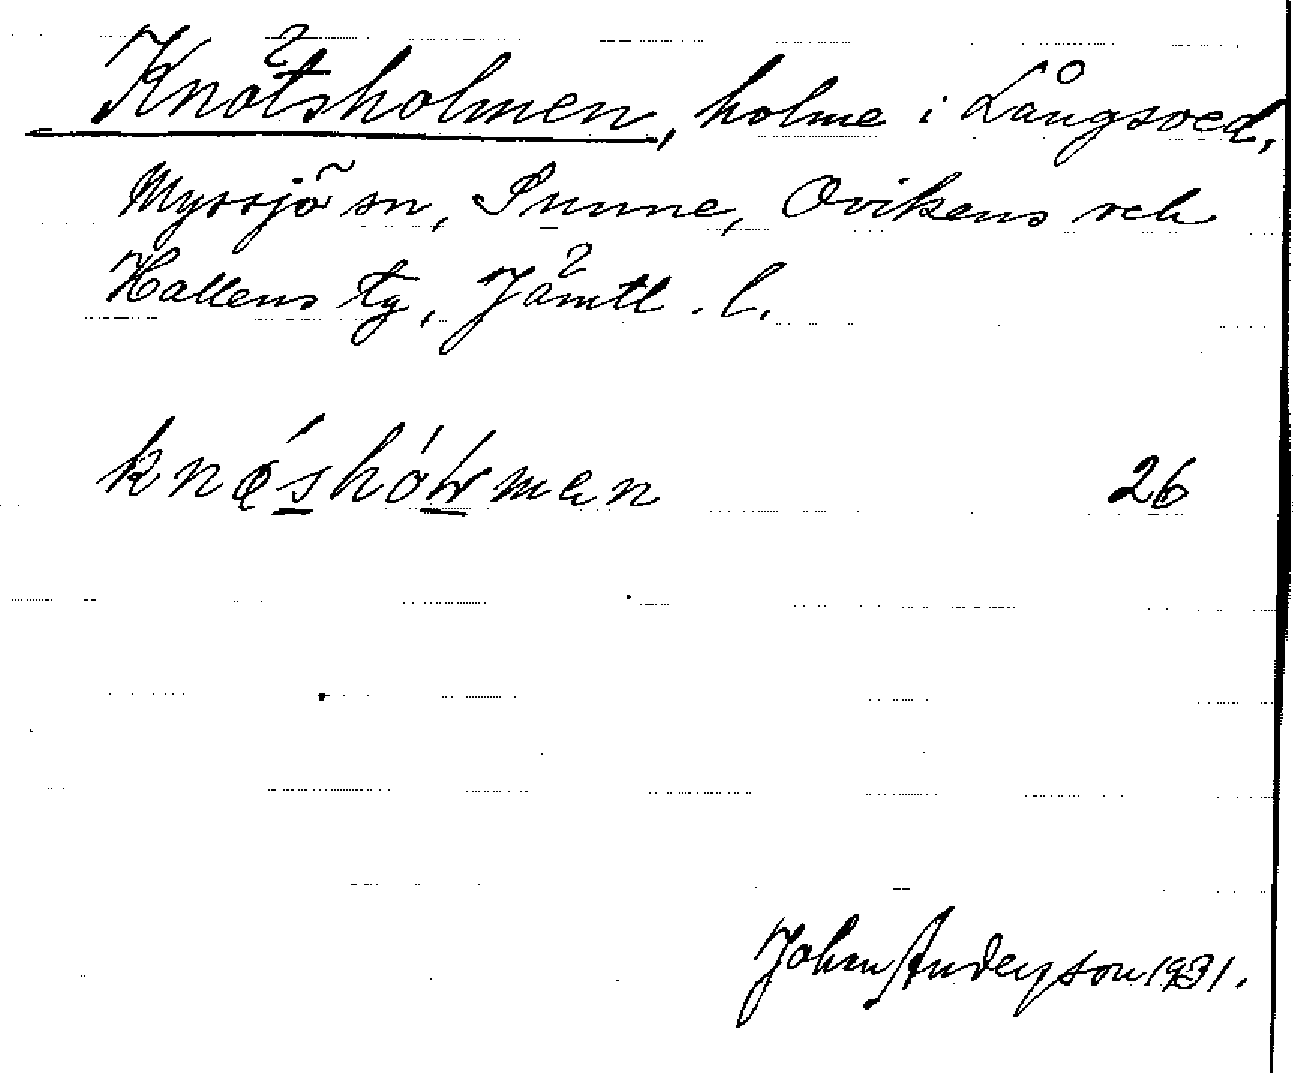 Knätsholmen, holme i Långsved,
Myssjö sn, Sunne, Ovikens och
Hallens tg, Jämtl. l.
26
John Anderson 1931.